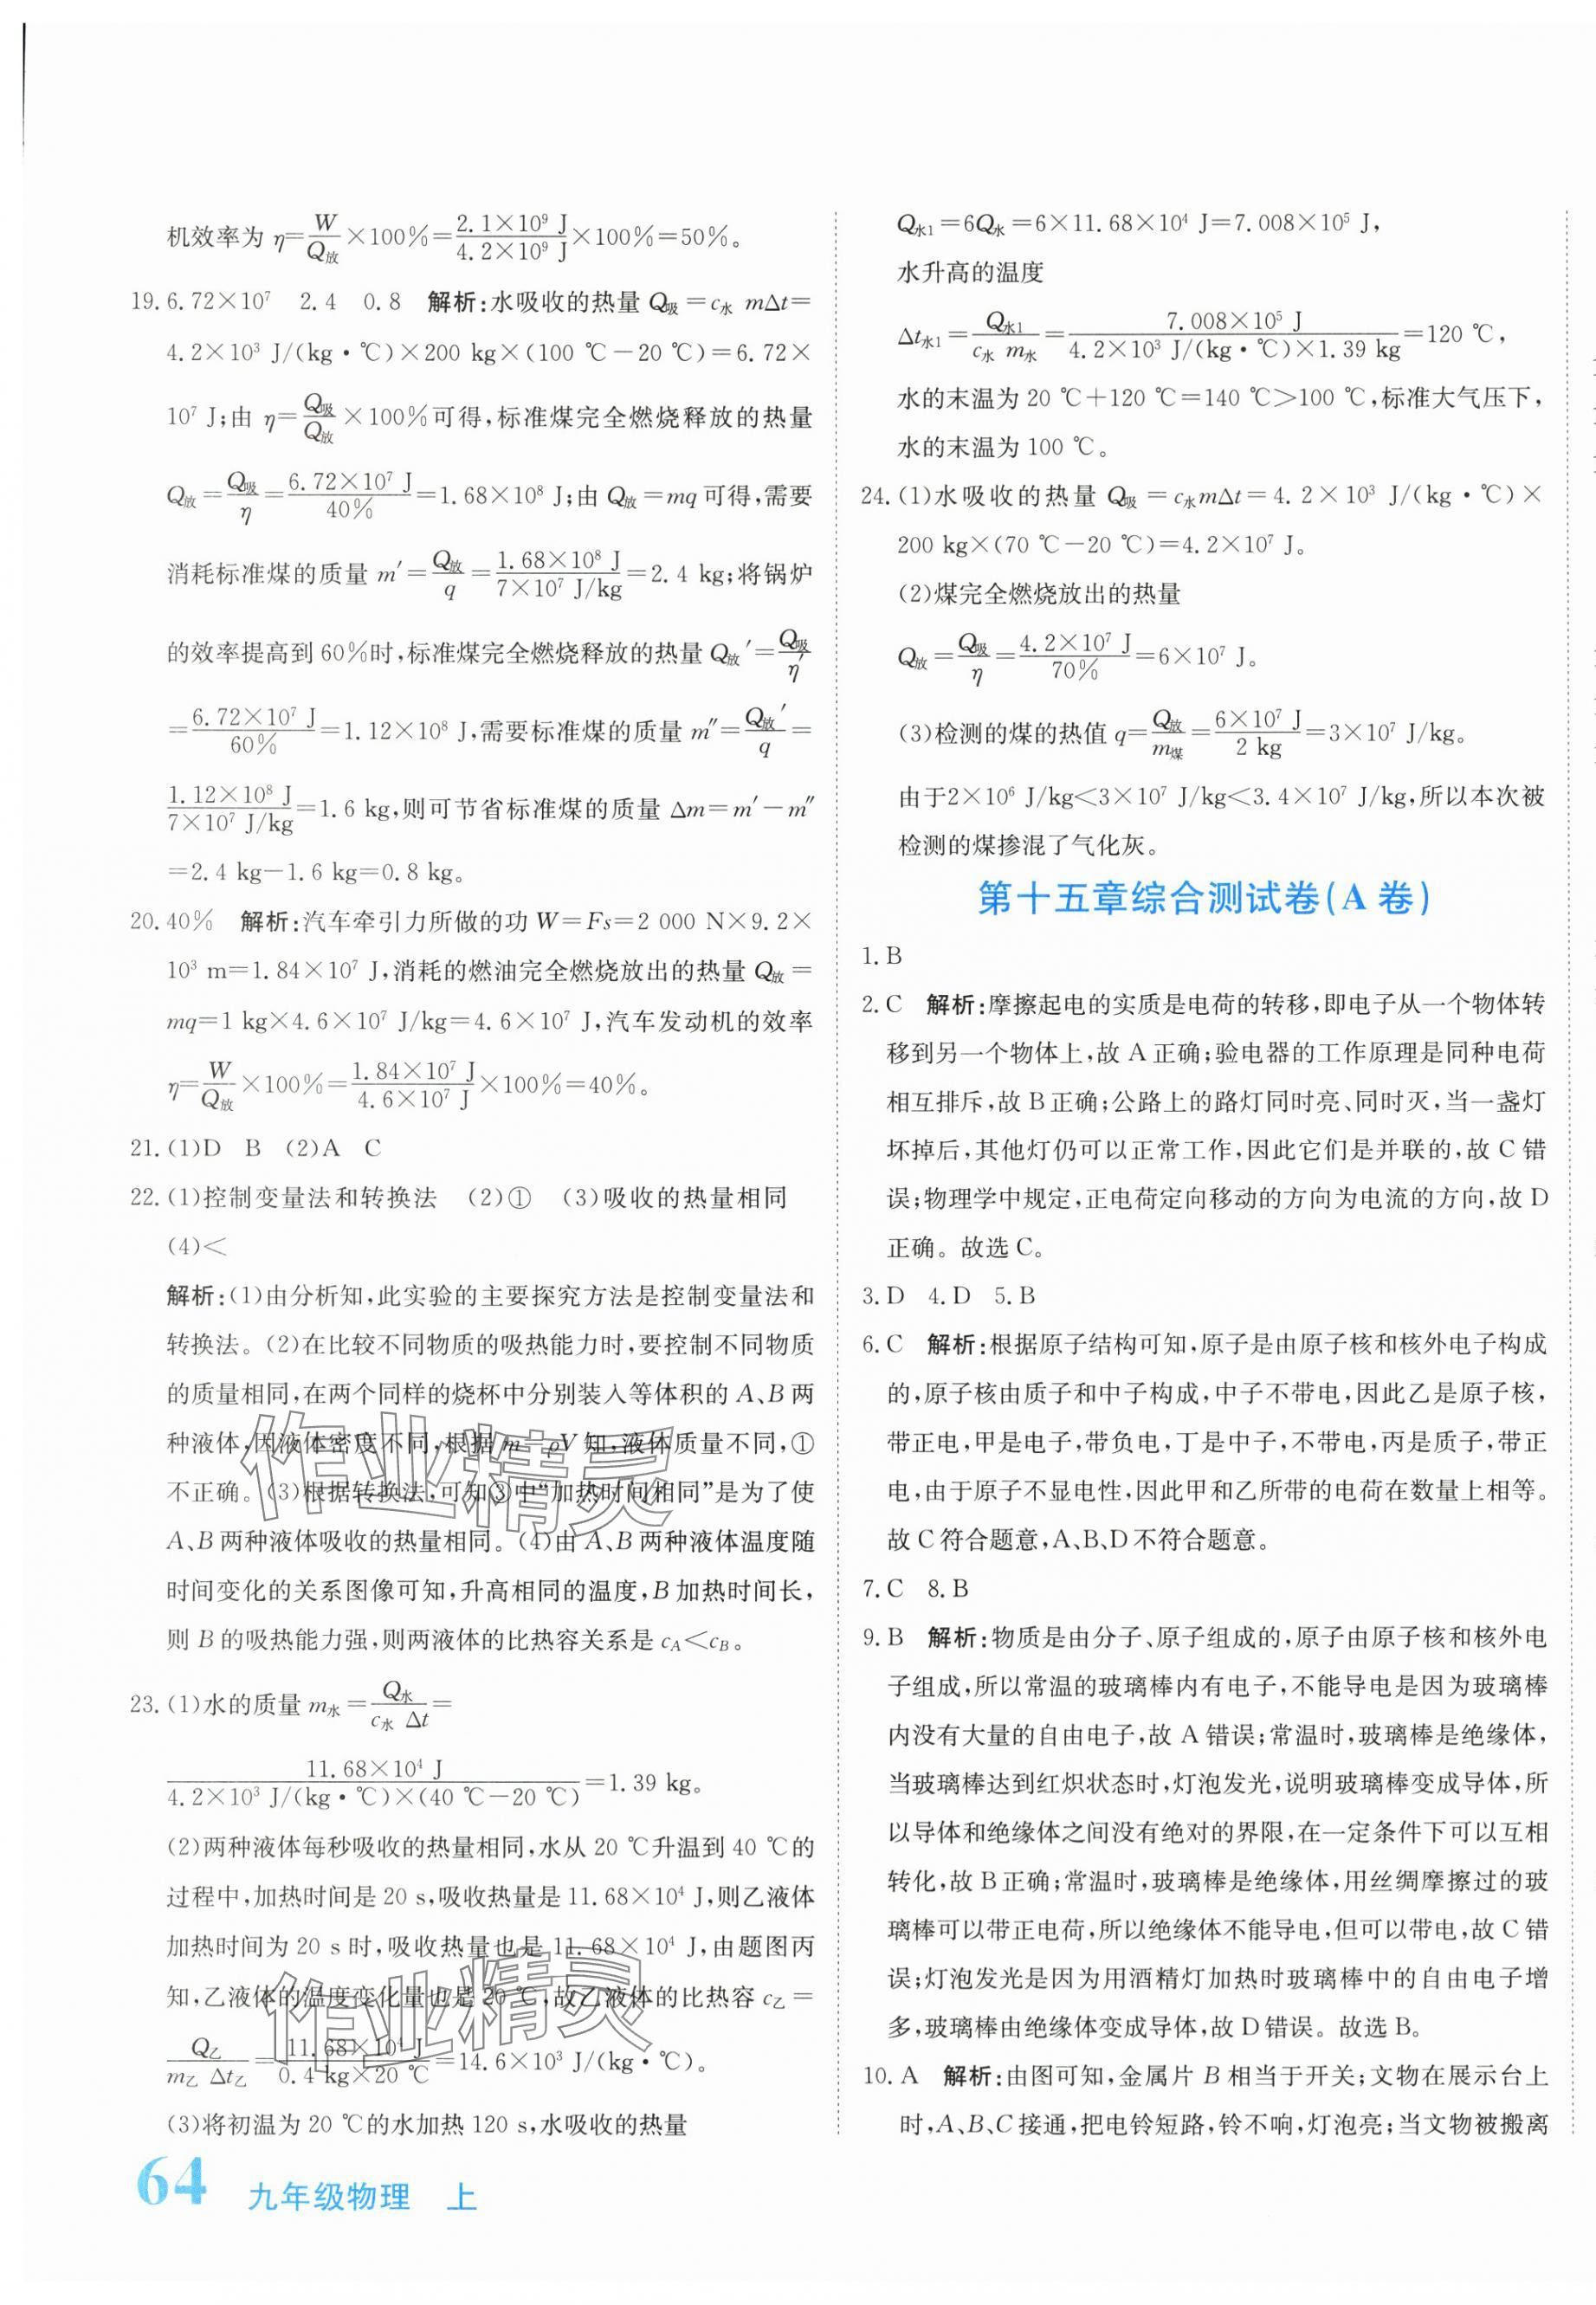 机效率为 η=W/Q放×100%=2.1×10⁹ J/4.2×10⁹ J×100%=50%。
19. 6.72×10⁷ 2.4 0.8 解析:水吸收的热量 Q吸=c水 mΔt=
4.2×10³ J/(kg·℃)×200 kg×(100 ℃-20 ℃)=6.72×
10⁷ J;由 η=Q吸/Q放×100%可得,标准煤完全燃烧释放的热量
Q放=Q吸/η=6.72×10⁷ J/40%=1.68×10⁸ J;由 Q放=mq 可得,需要
消耗标准煤的质量 m′=Q放/q=1.68×10⁸ J/7×10⁷ J/kg=2.4 kg;将锅炉
的效率提高到 60%时,标准煤完全燃烧释放的热量 Q放′=Q吸/η′
=6.72×10⁷ J/60%=1.12×10⁸ J,需要标准煤的质量 m″=Q放′/q=
1.12×10⁸ J/7×10⁷ J/kg=1.6 kg,则可节省标准煤的质量 Δm=m′-m″
=2.4 kg-1.6 kg=0.8 kg。
20. 40% 解析:汽车牵引力所做的功 W=Fs=2 000 N×9.2×
10³ m=1.84×10⁷ J,消耗的燃油完全燃烧放出的热量 Q放=
mq=1 kg×4.6×10⁷ J/kg=4.6×10⁷ J,汽车发动机的效率
η=W/Q放×100%=1.84×10⁷ J/4.6×10⁷ J×100%=40%。
21. (1)D B (2)A C
22. (1)控制变量法和转换法 (2)① (3)吸收的热量相同
(4)<
解析:(1)由分析知,此实验的主要探究方法是控制变量法和
转换法。(2)在比较不同物质的吸热能力时,要控制不同物质
的质量相同,在两个同样的烧杯中分别装入等体积的 A、B 两
种液体,因液体密度不同,根据 m=ρV 知,液体质量不同,①
不正确。(3)根据转换法,可知③中“加热时间相同”是为了使
A、B 两种液体吸收的热量相同。(4)由 A、B 两种液体温度随
时间变化的关系图像可知,升高相同的温度,B 加热时间长,
则 B 的吸热能力强,则两液体的比热容关系是 cA<cB。
23. (1)水的质量 m水=Q水/c水 Δt=
11.68×10⁴ J/4.2×10³ J/(kg·℃)×(40 ℃-20 ℃)=1.39 kg。
(2)两种液体每秒吸收的热量相同,水从 20 ℃升温到 40 ℃的
过程中,加热时间是 20 s,吸收热量是 11.68×10⁴ J,则乙液体
加热时间为 20 s 时,吸收热量也是 11.68×10⁴ J,由题图丙
知,乙液体的温度变化量也是 20 ℃,故乙液体的比热容 c乙=
Q乙/m乙 Δt乙=11.68×10⁴ J/0.4 kg×20 ℃=14.6×10³ J/(kg·℃)。
(3)将初温为 20 ℃的水加热 120 s,水吸收的热量
64 九年级物理 上
Q水1=6Q水=6×11.68×10⁴ J=7.008×10⁵ J,
水升高的温度
Δt水1=Q水1/c水 m水=7.008×10⁵ J/4.2×10³ J/(kg·℃)×1.39 kg=120 ℃,
水的末温为 20 ℃+120 ℃=140 ℃>100 ℃,标准大气压下,
水的末温为 100 ℃。
24. (1)水吸收的热量 Q吸=c水mΔt=4.2×10³ J/(kg·℃)×
200 kg×(70 ℃-20 ℃)=4.2×10⁷ J。
(2)煤完全燃烧放出的热量
Q放=Q吸/η=4.2×10⁷ J/70%=6×10⁷ J。
(3)检测的煤的热值 q=Q放/m煤=6×10⁷ J/2 kg=3×10⁷ J/kg。
由于2×10⁶ J/kg<3×10⁷ J/kg<3.4×10⁷ J/kg,所以本次被
检测的煤掺混了气化灰。
第十五章综合测试卷(A 卷)
1. B
2. C 解析:摩擦起电的实质是电荷的转移,即电子从一个物体转
移到另一个物体上,故 A 正确;验电器的工作原理是同种电荷
相互排斥,故 B 正确;公路上的路灯同时亮、同时灭,当一盏灯
坏掉后,其他灯仍可以正常工作,因此它们是并联的,故 C 错
误;物理学中规定,正电荷定向移动的方向为电流的方向,故 D
正确。故选 C。
3. D 4. D 5. B
6. C 解析:根据原子结构可知,原子是由原子核和核外电子构成
的,原子核由质子和中子构成,中子不带电,因此乙是原子核,
带正电,甲是电子,带负电,丁是中子,不带电,丙是质子,带正
电,由于原子不显电性,因此甲和乙所带的电荷在数量上相等。
故 C 符合题意,A、B、D 不符合题意。
7. C 8. B
9. B 解析:物质是由分子、原子组成的,原子由原子核和核外电
子组成,所以常温的玻璃棒内有电子,不能导电是因为玻璃棒
内没有大量的自由电子,故 A 错误;常温时,玻璃棒是绝缘体,
当玻璃棒达到红炽状态时,灯泡发光,说明玻璃棒变成导体,所
以导体和绝缘体之间没有绝对的界限,在一定条件下可以互相
转化,故 B 正确;常温时,玻璃棒是绝缘体,用丝绸摩擦过的玻
璃棒可以带正电荷,所以绝缘体不能导电,但可以带电,故 C 错
误;灯泡发光是因为用酒精灯加热时玻璃棒中的自由电子增
多,玻璃棒由绝缘体变成导体,故 D 错误。故选 B。
10. A 解析:由图可知,金属片 B 相当于开关;文物在展示台上
时,A、B、C 接通,把电铃短路,铃不响,灯泡亮;当文物被搬离
作业精灵
作业精灵